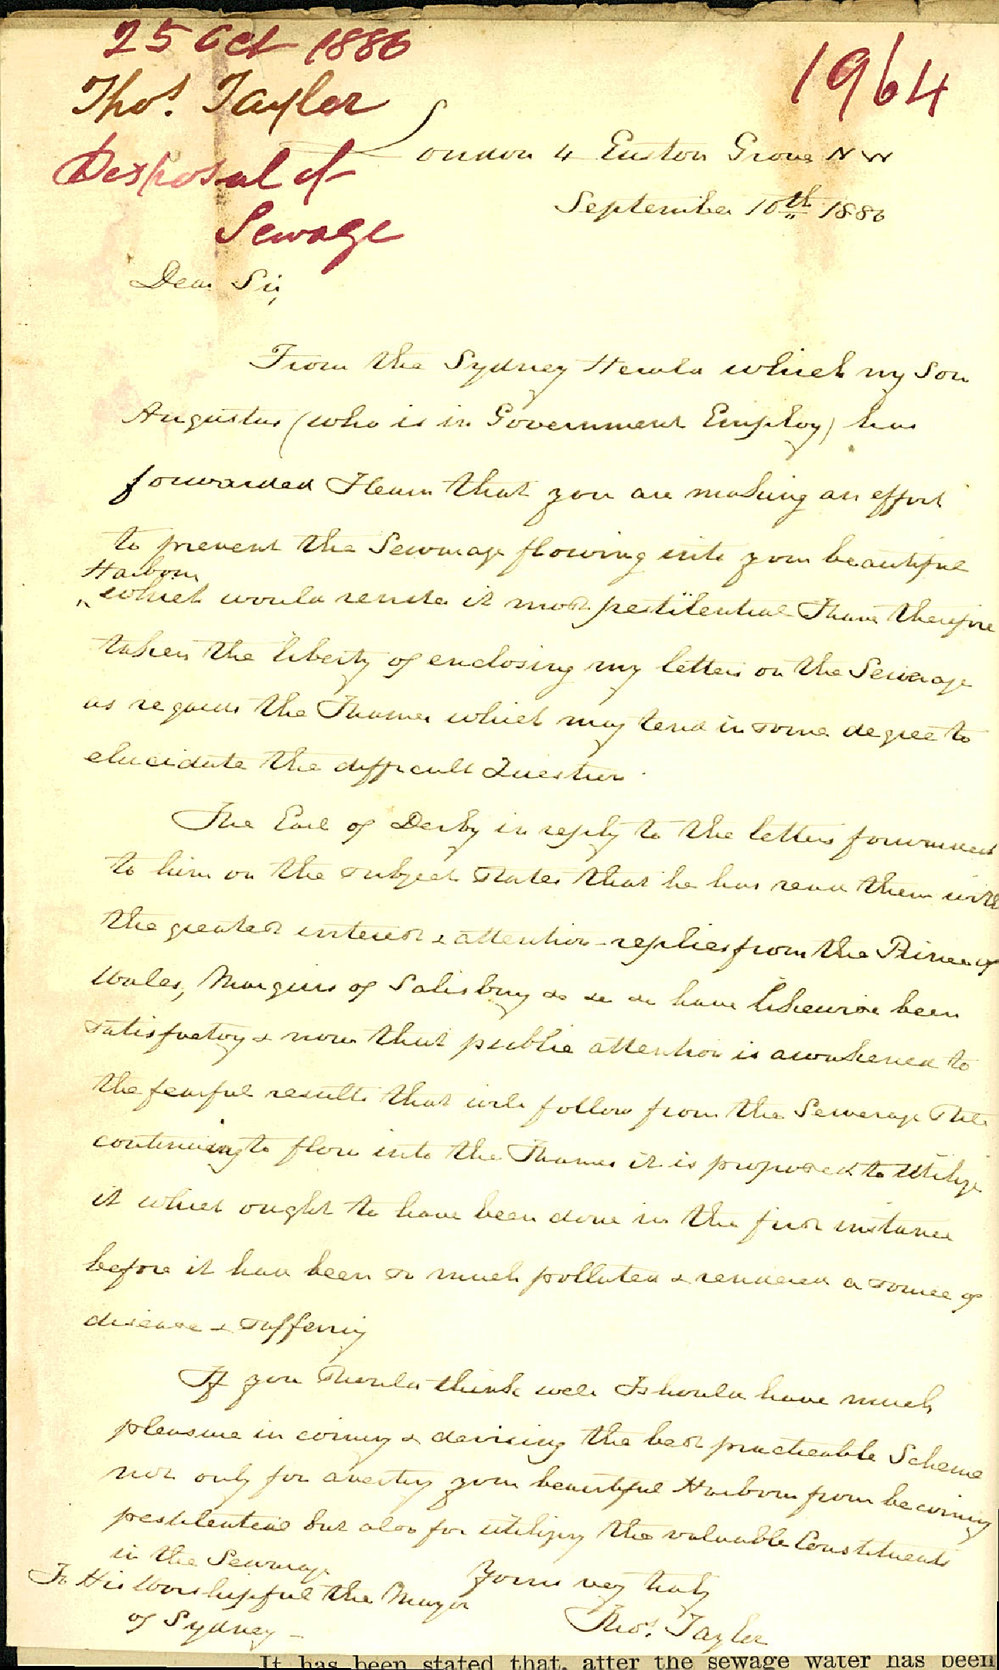 25 Oct 1886
1964
Thos. Taylor
Disposal of
Sewage
London 4 Euston Grove NW
September 10th 1886
Dear Sir,
From the Sydney Herald which my Son
Augustus (who is in Government Employ) has
forwarded I learn that you are making an effort
to prevent the Sewerage flowing into your beautiful
Harbour
which would render it most pestilential I have therefore
taken the liberty of enclosing my letters on the Sewerage
as regards the Thames which may tend in some degree to
elucidate the difficult Question.
The Earl of Derby in reply to the letters forwarded
to him on the subject states that he has read them with
the greatest interest & attention - replies from the Prince of
Wales, Marquis of Salisbury &c &c &c have likewise been
satisfactory & now that public attention is awakened to
the fearful results that will follow from the Sewerage still
continuing to flow into the Thames it is proposed to utilize
it which ought to have been done in the first instance
before it had been so much polluted & rendered a source of
disease & suffering
If you should think well I should have much
pleasure in coming & devising the best practicable Scheme
not only for averting your beautiful Harbour from becoming
pestilential but also for utilizing the valuable Constituents
in the Sewerage
Yours very truly
Thos. Taylor
To His Worshipful the Mayor
of Sydney -
It has been stated that, after the sewage water has been